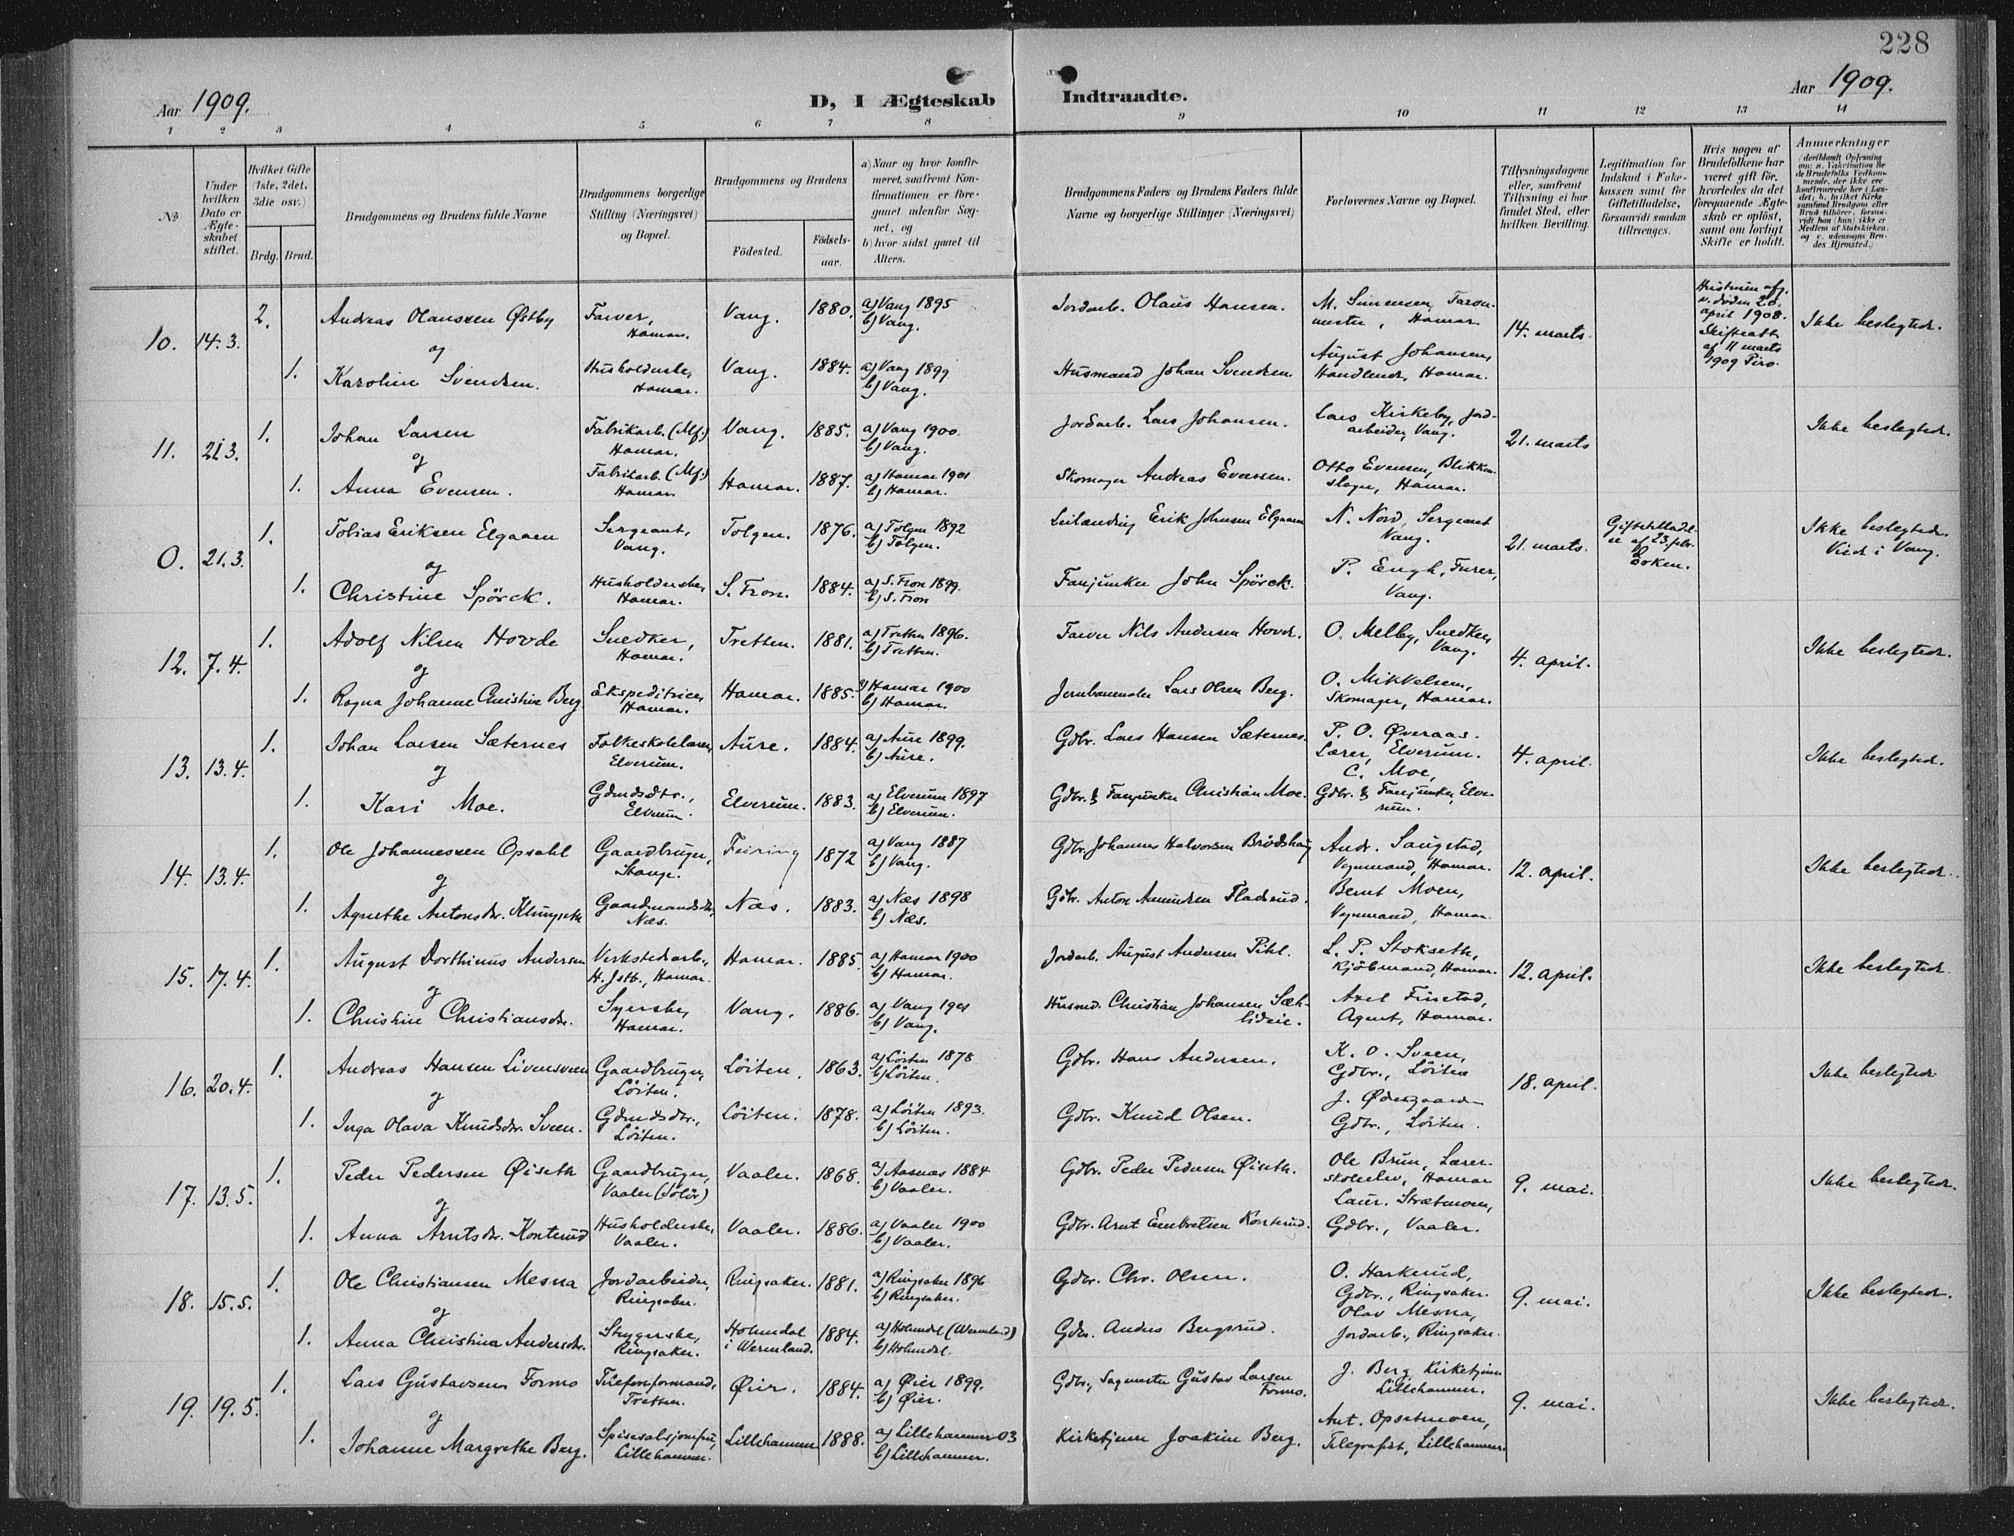 228
Aar 1909.
D, I Ægteskab Indtraadte.
Aar 1909.
1 2 3 4 5 6 7 8 9 10 11 12 13 14
No
Under hvilken Dato er Ægteskabet stiftet.
Hvilket Gifte (1ste, 2det, 3die osv.)
Brdg. Brud.
Brudgommens og Brudens fulde Navne
Brudgommens borgerlige Stilling (Næringsvei) og Bopæl.
Brudgommens og Brudens
Fødested.
Fødsels-aar.
a) Naar og hvor konfirmeret, saafremt Konfirmationen er foregaaet udenfor Sognet, og
b) hvor sidst gaaet til Alters.
Brudgommens Faders og Brudens Faders fulde Navne og borgerlige Stillinger (Næringsvei)
Forlovernes Navne og Bopæl.
Tillysningsdagene eller, saafremt Tillysning ei har fundet Sted, efter hvilken Bevilling.
Legitimation for Indskud i Enkekassen samt for Giftetilladelse, forsaavidt saadan tiltrænges.
Hvis nogen af Brudefolkene har været gift før, hvorledes da det foregaaende Ægteskab er opløst, samt om lovligt Skifte er holdt.
Anmerkninger
10. 14.3. 2. Andreas Olaussen Østby Farver, Hamar. Vang. 1880. a) Vang 1895 b) Vang. Jordarb. Olaus Hansen. M. Simensen, Hamar. 14. marts. Hustruen afg. v. døden 20. april 1908. Skifteatt. af 11 marts 1909 Ikke beslegtede.
og
1. Karoline Svendsen. Husholderske, Hamar. Vang. 1884. a) Vang 1899 b) Vang. Husmand Johan Svendsen. August Johansen, Handlende, Hamar.
11. 21.3. 1. Johan Larsen Fabrikarb. (Mf.) Hamar. Vang. 1885. a) Vang 1900. b) Vang. Jordarb. Lars Johansen. Lars Kirkeby, Jordarbeider, Vang. 21. marts Ikke beslegtede.
og
1. Anna Evensen. Fabrikarb. (Mf.) Hamar. Hamar. 1887. a) Hamar 1901 b) Hamar. Skomager Andreas Evensen. Otto Evensen, Blikkenslager, Hamar.
0. 21.3. 1. Tobias Eriksen Elgaaen Sergeant, Vang. Tolgen. 1876. a) Tolgen 1892 b) Tolgen. Leilænding Erik Johnsen Elgaaen N. Nord, Sergeant Vang. 21. marts. Giftetilladelse af 23. febr. Ikke beslegtede. Viede i Vang.
og
1. Christine Spörck. Husholderske, Hamar. S. Fron. 1884. a) S. Fron 1899. b) S. Fron Fanejunker John Spörck. P. Engh, Furer, Vang.
12. 7.4. 1. Adolf Nilsen Hovde Snedker, Hamar. Tretten. 1881. a) Tretten 1896. b) Tretten. Farver Nils Andersen Hovde. O. Melby, Snedker, Vang. 4. april. Ikke beslegtede.
og
1. Ragna Johanne Christine Berg Ekspeditrice, Hamar. Hamar. 1885. a) Hamar 1900 b) Hamar. Lars Olsen Berg. O. Mikkelsen, Skomager, Hamar.
13. 13.4. 1. Johan Larsen Sæternes Folkeskolelærer, Elverum. Aure. 1884. a) Aure 1899. b) Aure. Gdbr. Lars Hansen Sæternes. P. O. Øveraas. Lærer, Elverum. 4. april. Ikke beslegtede.
og
1. Kari Moe. Gdmdsdtr., Elverum. Elverum. 1883. a) Elverum 1897 b) Elverum. Gdbr. & Fanejunker Christian Moe. C. Moe, Gdbr. & Fanejunker, Elverum.
14. 13.4. 1. Ole Johannessen Opsahl Gaardbruger, Stange. Feiring 1872 a) Vang 1887 b) Vang. Gdbr. Johannes Halvorsen Brödshaug Andr. Saugstad, Vognmand, Hamar. 12. april. Ikke beslegtede.
og
1. Agnethe Antonsdr. Klungseth Gaardmandsdtr, Næs. Næs. 1883. a) Næs 1898 b) Næs. Gdbr. Anton Amundsen Fladsrud. Bernt Moen, Vognmand, Hamar.
15. 17.4. 1. August Dorthinus Andersen Verkstedarb., H. Jstb., Hamar. Hamar. 1885. a) Hamar 1900 b) Hamar. Jordarb. August Andersen Pihl. L. P. Stokseth, Kjöbmand, Hamar. 12. april. Ikke beslegtede.
og
1. Christine Christiansdr. Syerske, Hamar. Vang. 1886. a) Vang 1901 b) Vang. Husmd. Christian Johansen Sæhlideie. Axel Finstad, Agent, Hamar.
16. 20.4. 1. Andreas Hansen Livensveen Gaardbruger, Löiten. Löiten. 1863. a) Löiten 1878 b) Löiten. Gdbr. Hans Andersen. K. O. Sveen, Gdbr., Löiten 18. april. Ikke beslegtede
og
1. Inga Olava Knudsdr. Sveen. Gdmdsdtr., Löiten. Löiten. 1878. a) Löiten 1893. b) Löiten. Gdbr. Knud Olsen. J. Ødegaarden Gdbr., Löiten.
17. 13.5. 1. Peder Pedersen Øiseth Gaardbruger, Vaaler (Solör) Vaaler. 1868. a) Aasnæs 1884 b) Vaaler. Gdbr. Peder Pedersen Øiseth. Ole Brun, Lærerskoleelev, Hamar 9. mai. Ikke beslegtede.
og
1. Anna Arntsdr. Konterud Husholderske, Vaaler. Vaaler. 1886. a) Vaaler 1900 b) Vaaler. Gdbr. Arnt Embretsen Konterud. Laur. Strætmoen, Gdbr., Vaaler.
18. 15.5. 1. Ole Christiansen Mesna Jordarbeider, Ringsaker. Ringsaker. 1881. a) Ringsaker 1896 b) Ringsaker. Gdbr. Chr. Olsen. O. Harkerud, Gdbr., Ringsaker. 9. mai. Ikke beslegtede.
og
1. Anna Christina Andersdr. Strygerske, Ringsaker. Holmedal i Wermland. 1884. a) Holmedal (Wermland) b) Holmedal. Gdbr. Anders Bergsrud. Olav Mesna, Jordarb., Ringsaker.
19. 19.5. 1. Lars Gustavsen Formo Telefonformand, Tretten. Øier. 1884. a) Øier 1899. b) Øier. Gdbr., Sagmester Gustav Larsen Formo. J. Berg, Kirketjener Lillehammer. 9. mai. Ikke beslegtede.
og
1. Johanne Margrethe Berg. Spisesalsjomfru, Lillehammer. Lillehammer 1888. a) Lillehammer 03 b) Lillehammer. Kirketjener Joakim Berg. Ant. Opsetmoen, Telegrafist, Lillehammer.